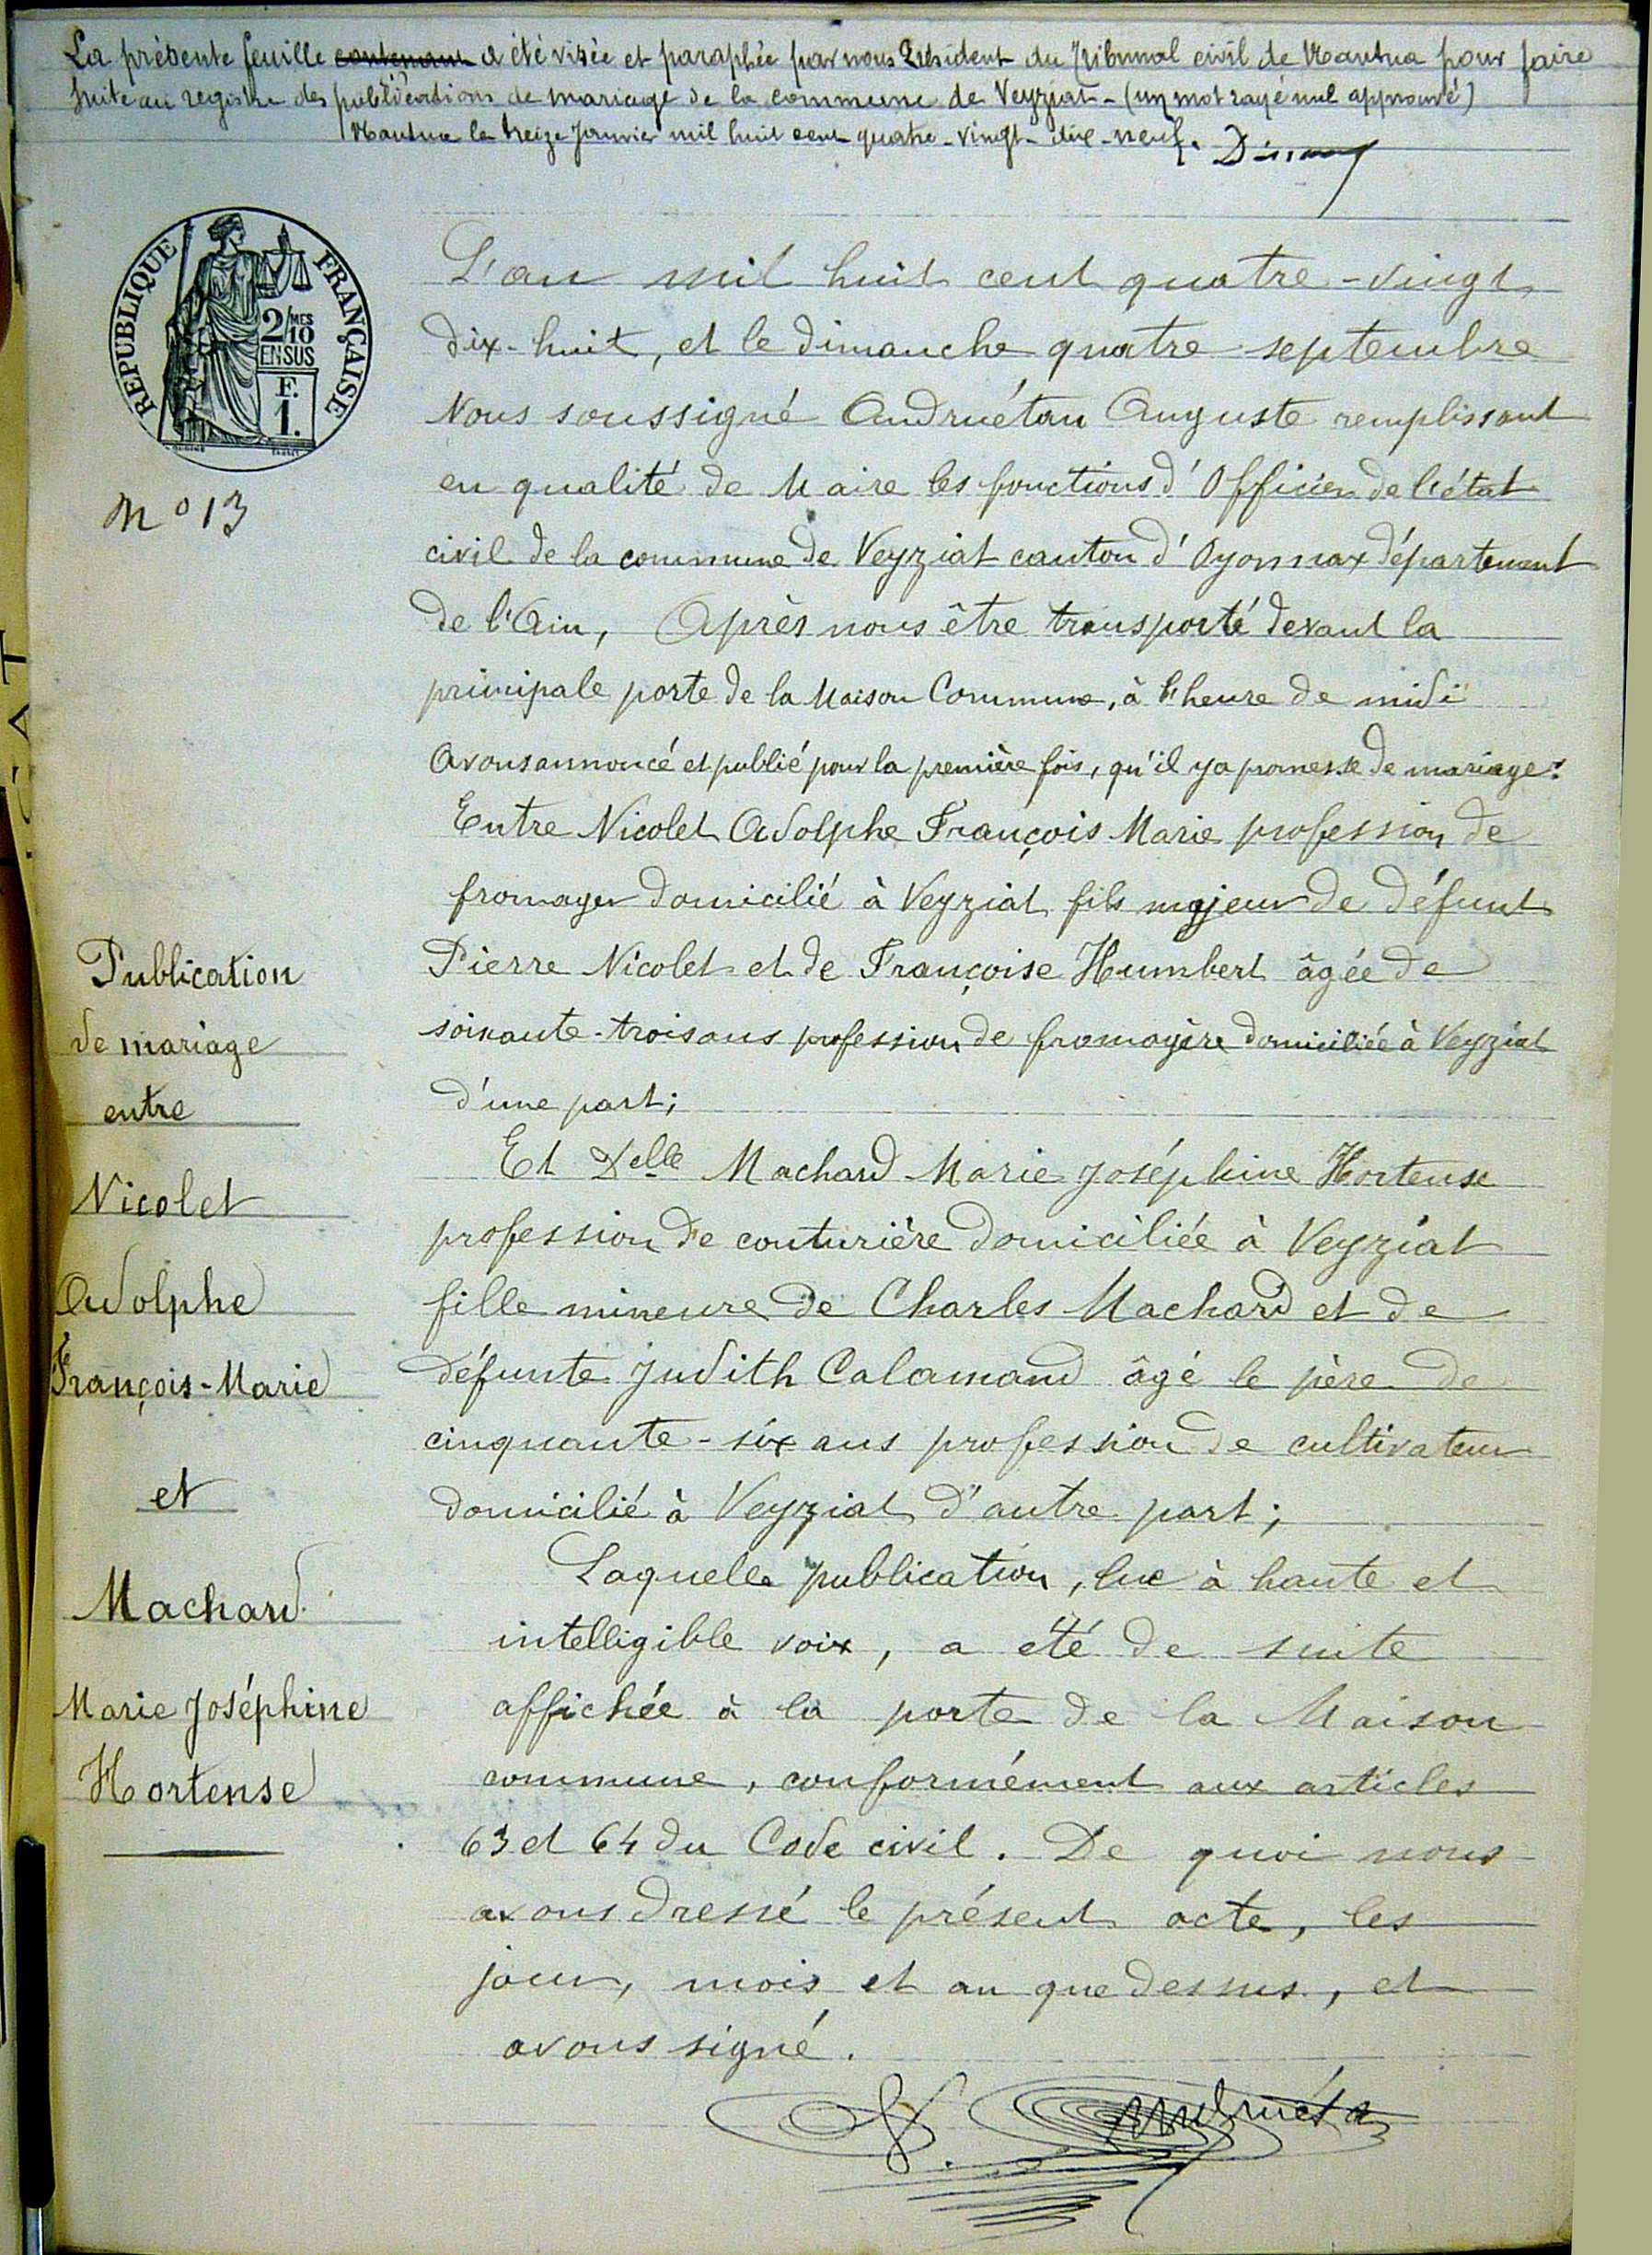 La présente feuille contenant a été visée et paraphée par nous Président du Tribunal civil de Nantua pour faire
suite au registre des publications de mariage de la commune de Veyziat - (un mot rayé nul approuvé)
Nantua le treize Janvier mil huit cent quatre-vingt-dix-neuf.
RÉPUBLIQUE FRANÇAISE
2/MES
10
EN SUS
F.
1.
N° 13
L'an mil huit cent quatre-vingt
dix-huit, et le dimanche quatre septembre
Nous soussigné Andruétan Auguste remplissant
en qualité de Maire les fonctions d'Officier de l'état
civil de la commune de Veyziat canton d'Oyonnax département
de l'Ain, Après nous être transporté devant la
principale porte de la Maison Commune, à l'heure de midi
Avons annoncé et publié pour la première fois, qu'il y a promesse de mariage:
Entre Nicolet Adolphe François Marie profession de
fromager domicilié à Veyziat fils majeur de défunt
Pierre Nicolet et de Françoise Humbert âgée de
soixante-trois ans profession de fromagère domiciliée à Veyziat
d'une part;
Et Delle Machard Marie Joséphine Hortense
profession de couturière domiciliée à Veyziat
fille mineure de Charles Machard et de
défunte Judith Calamand âgé le père de
cinquante-six ans profession de cultivateur
domicilié à Veyziat d'autre part;
Laquelle publication, lue à haute et
intelligible voix, a été de suite
affichée à la porte de la Maison
commune, conformément aux articles
63 et 64 du Code civil. De quoi nous
avons dressé le présent acte, les
jour, mois et an que dessus, et
avons signé.
Andruétan
Publication
de mariage
entre
Nicolet
Adolphe
François-Marie
et
Machard
Marie Joséphine
Hortense